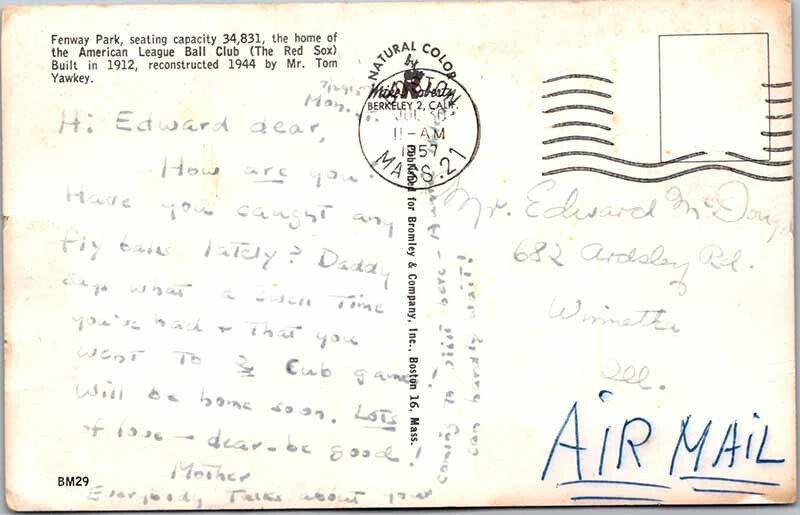 Fenway Park, seating capacity 34,831, the home of
the American League Ball Club (The Red Sox)
Built in 1912, reconstructed 1944 by Mr. Tom
Yawkey.
NATURAL COLOR
by
Mike Roberty
BERKELEY 2, CALIF.
JUL 30
11-AM
1957
MASS. 21
Mon.
Hi Edward dear,
How are you.
Have you caught any
fly balls lately? Daddy
says what a swell time
you've had + that you
went to a Cub game.
Will be home soon. Lots
of love - dear - be good!
Mother
Everybody talks about your
coming to
can hardly wait!
Published for Bromley & Company, Inc., Boston 16, Mass.
Mr. Edward McDouga
682 Ardsley Rd.
Winnetka
Ill.
AIR MAIL
BM29